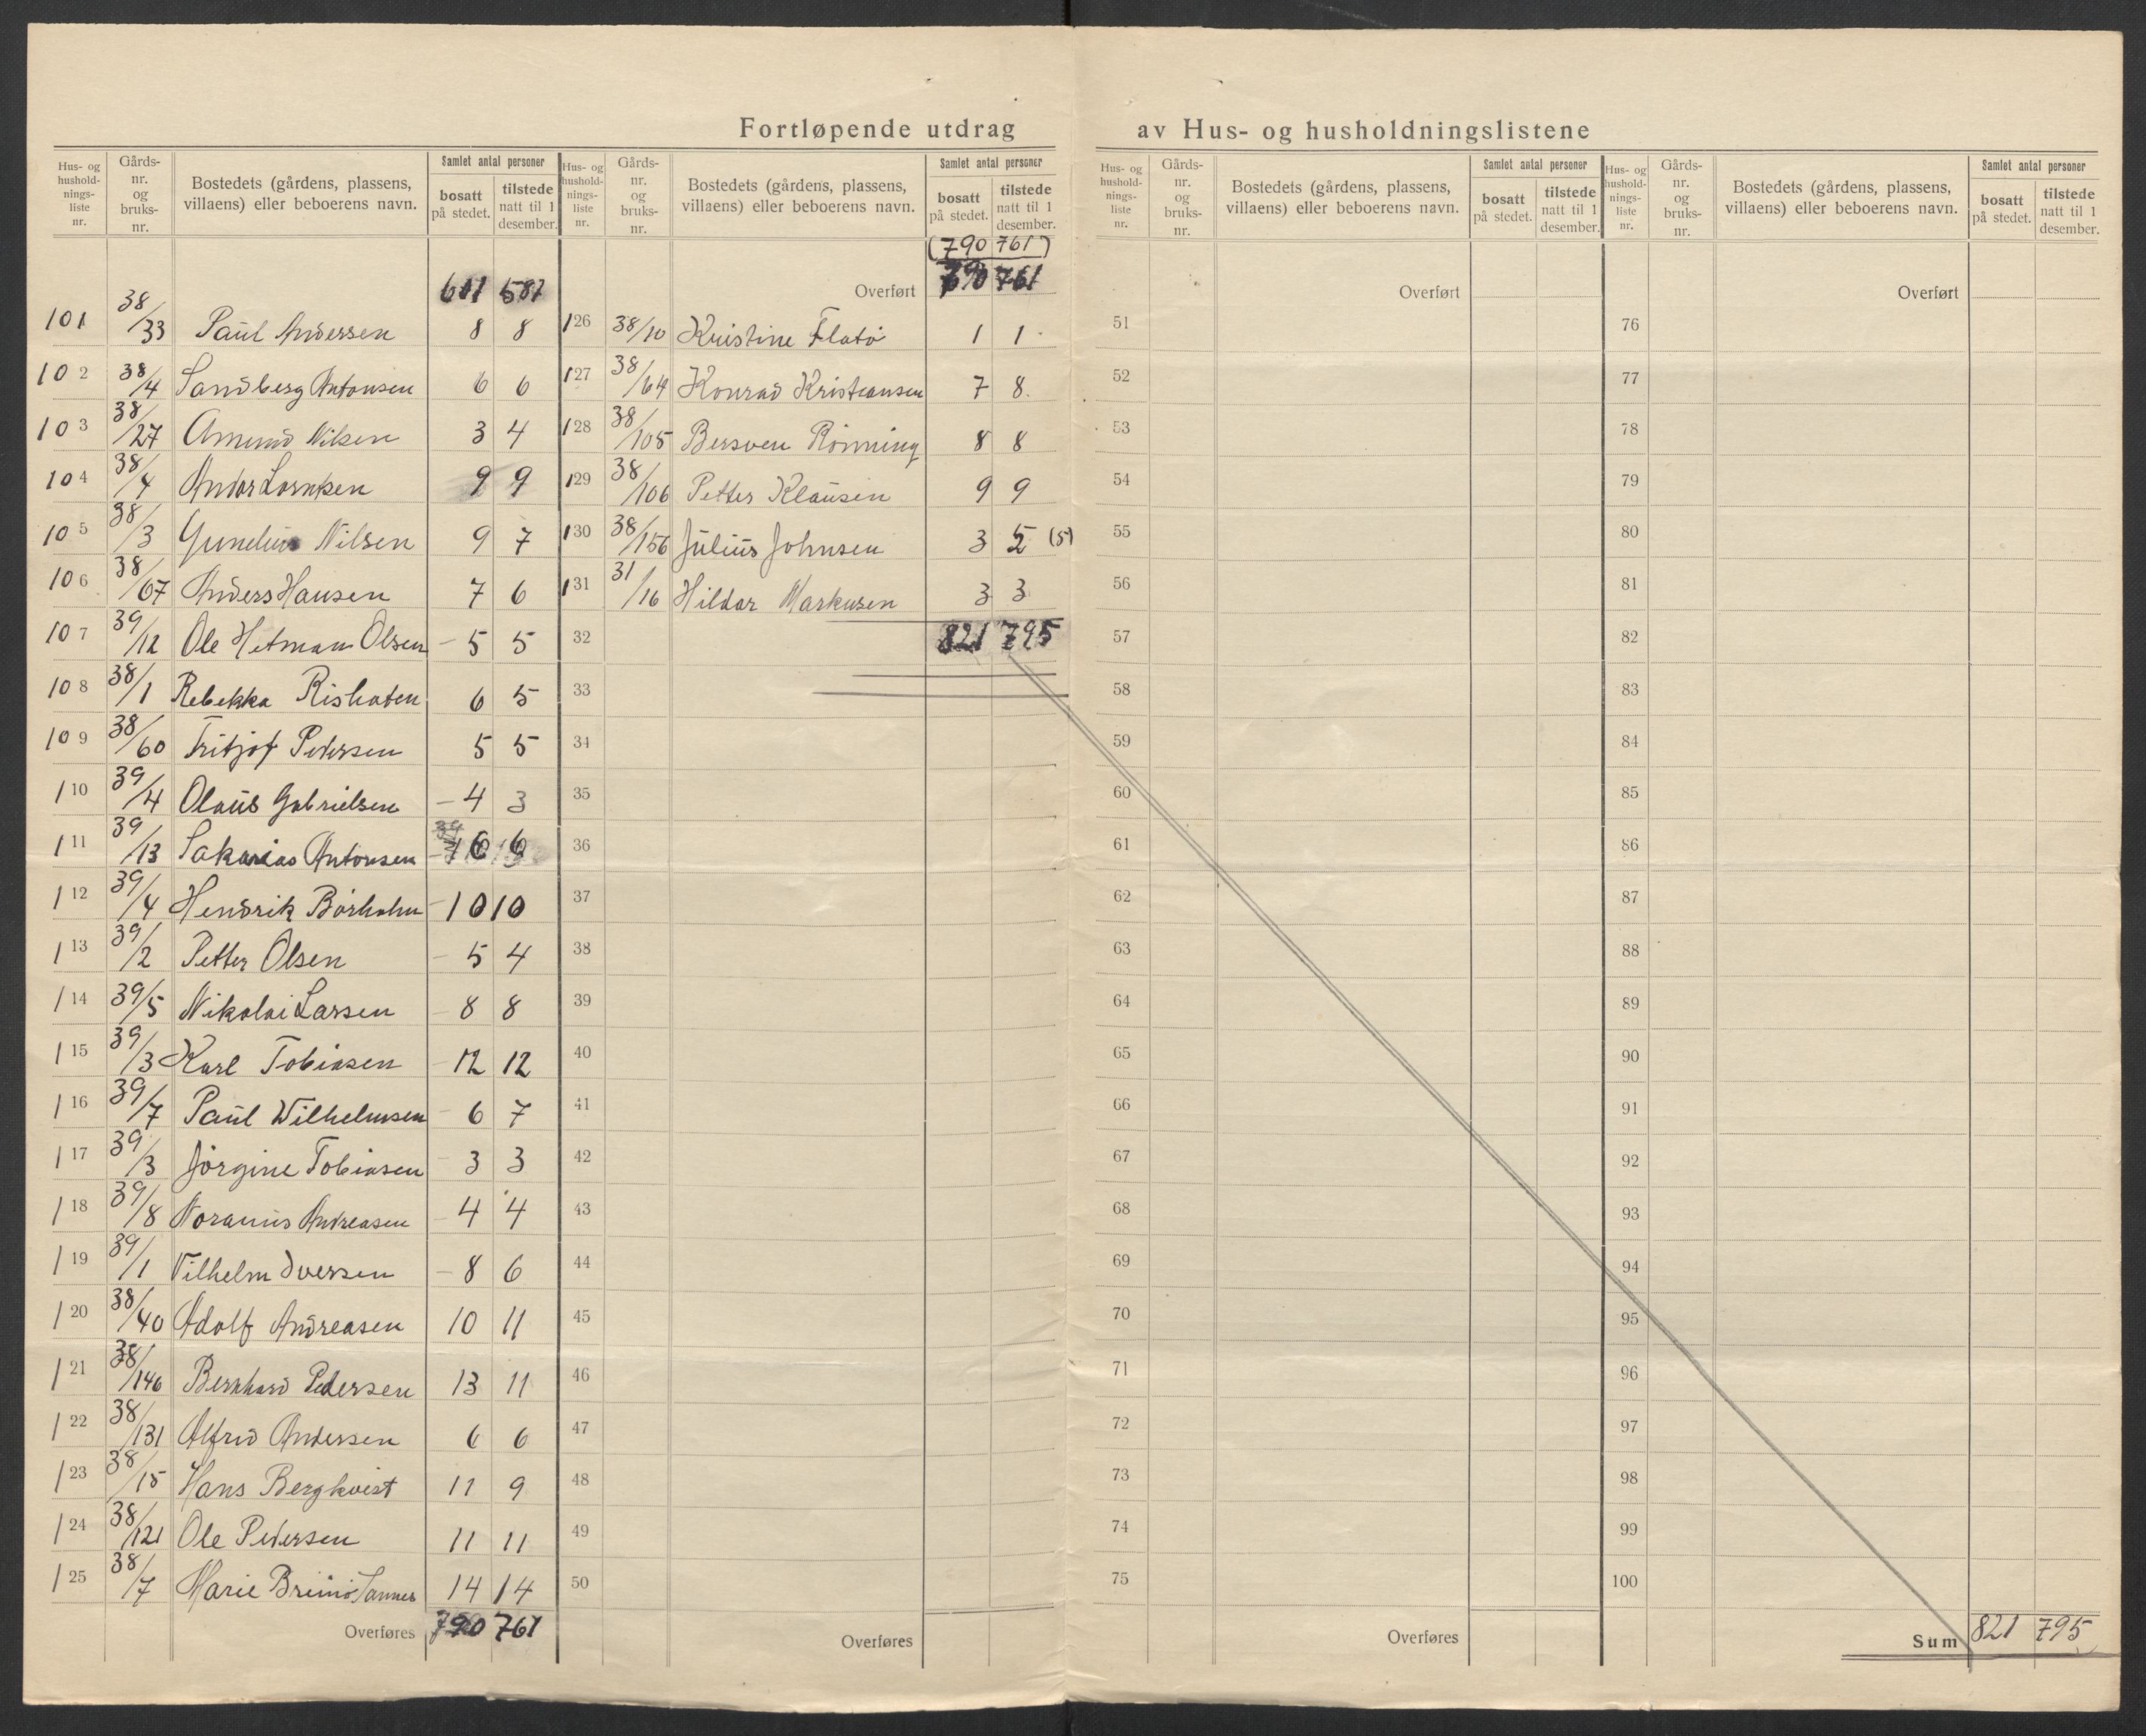 Fortløpende utdrag av Hus- og husholdningslistene
Hus- og husholdnings-liste nr. Gårds-nr. og bruks-nr. Bostedets (gårdens, plassens, villaens) eller beboerens navn. Samlet antal personer bosatt på stedet. tilstede natt til 1 desember.
101 38/33 Paul Andersen 8 8
102 38/4 Sandberg Antonsen 6 6
103 38/27 Amund Nilsen 3 4
104 38/4 9 9
105 38/3 Nilsen 9 7
106 38/67 Anders Hansen 7 6
107 39/12 Ole Hetman Olsen – 5 5
108 38/1 Rebekka 6 5
109 38/60 Fritjof Pedersen 5 5
110 39/4 Olaus Gabrielsen – 4 3
111 39/13 Sakarias Antonsen 6 6
112 39/4 Hendrik Borholm – 10 10
113 39/2 Petter Olsen – 5 4
114 39/5 Nikolai Larsen – 8 8
115 39/3 Karl Tobiasen – 12 12
116 39/7 Paul Wilhelmsen – 6 7
117 39/3 Jørgine Tobiasen – 3 3
118 39/8 Andreasen – 4 4
119 39/1 Vilhelm Iversen – 8 6
120 38/40 Adolf Andreasen 10 11
121 38/146 Bernhard Pedersen 13 11
122 38/131 Alfred Andersen 6 6
123 38/15 Hans Bergkvist 11 9
124 38/121 Ole Pedersen 11 11
125 38/7 Marie 14 14
Overføres 790 761
Hus- og husholdnings-liste nr. Gårds-nr. og bruks-nr. Bostedets (gårdens, plassens, villaens) eller beboerens navn. Samlet antal personer bosatt på stedet. tilstede natt til 1 desember.
(790 761)
Overført 790 761
126 38/10 Kristine Flatø 1 1
127 38/64 Konrad Kristiansen 7 8
128 38/105 Bersven Rønning 8 8
129 38/106 Petter Klausen 9 9
130 38/156 Julius Johnsen 3 5 (5)
131 31/16 Hildor Markusen 3 3
32 821 795
33
34
35
36
37
38
39
40
41
42
43
44
45
46
47
48
49
50
Overføres
Hus- og husholdnings-liste nr. Gårds-nr. og bruks-nr. Bostedets (gårdens, plassens, villaens) eller beboerens navn. Samlet antal personer bosatt på stedet. tilstede natt til 1 desember.
Overført
51
52
53
54
55
56
57
58
59
60
61
62
63
64
65
66
67
68
69
70
71
72
73
74
75
Overføres
Hus- og husholdnings-liste nr. Gårds-nr. og bruks-nr. Bostedets (gårdens, plassens, villaens) eller beboerens navn. Samlet antal personer bosatt på stedet. tilstede natt til 1 desember.
Overført
76
77
78
79
80
81
82
83
84
85
86
87
88
89
90
91
92
93
94
95
96
97
98
99
100
Sum 821 795